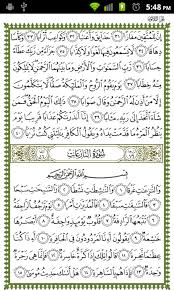 5:48 PM
إِنَّ لِلْمُتَّقِينَ مَفَازًا ٣١ حَدَآئِقَ وَأَعْنَٰبًا ٣٢ وَكَوَاعِبَ أَتْرَابًا ٣٣ وَكَأْسًا
دِهَاقًا ٣٤ لَّا يَسْمَعُونَ فِيهَا لَغْوًا وَلَا كِذَّٰبًا ٣٥ جَزَآءً مِّن رَّبِّكَ عَطَآءً
حِسَابًا ٣٦ رَّبِّ ٱلسَّمَٰوَٰتِ وَٱلْأَرْضِ وَمَا بَيْنَهُمَا ٱلرَّحْمَٰنِ لَا يَمْلِكُونَ
مِنْهُ خِطَابًا ٣٧ يَوْمَ يَقُومُ ٱلرُّوحُ وَٱلْمَلَٰٓئِكَةُ صَفًّا لَّا يَتَكَلَّمُونَ
إِلَّا مَنْ أَذِنَ لَهُ ٱلرَّحْمَٰنُ وَقَالَ صَوَابًا ٣٨ ذَٰلِكَ ٱلْيَوْمُ ٱلْحَقُّ فَمَن
شَآءَ ٱتَّخَذَ إِلَىٰ رَبِّهِۦ مَـَٔابًا ٣٩ إِنَّآ أَنذَرْنَٰكُمْ عَذَابًا قَرِيبًا يَوْمَ
يَنظُرُ ٱلْمَرْءُ مَا قَدَّمَتْ يَدَاهُ وَيَقُولُ ٱلْكَافِرُ يَٰلَيْتَنِى كُنتُ تُرَٰبًۢا ٤٠
سُورَةُ النَّازِعَاتِ
بِسْمِ ٱللَّهِ ٱلرَّحْمَٰنِ ٱلرَّحِيمِ
وَٱلنَّٰزِعَٰتِ غَرْقًا ١ وَٱلنَّٰشِطَٰتِ نَشْطًا ٢ وَٱلسَّٰبِحَٰتِ سَبْحًا
٣ فَٱلسَّٰبِقَٰتِ سَبْقًا ٤ فَٱلْمُدَبِّرَٰتِ أَمْرًا ٥ يَوْمَ تَرْجُفُ ٱلرَّاجِفَةُ
٦ تَتْبَعُهَا ٱلرَّادِفَةُ ٧ قُلُوبٌ يَوْمَئِذٍ وَاجِفَةٌ ٨ أَبْصَٰرُهَا
خَٰشِعَةٌ ٩ يَقُولُونَ أَءِنَّا لَمَرْدُودُونَ فِى ٱلْحَافِرَةِ ١٠ أَءِذَا كُنَّا
عِظَٰمًا نَّخِرَةً ١١ قَالُوا۟ تِلْكَ إِذًا كَرَّةٌ خَاسِرَةٌ ١٢ فَإِنَّمَا هِىَ زَجْرَةٌ
وَٰحِدَةٌ ١٣ فَإِذَا هُم بِٱلسَّاهِرَةِ ١٤ هَلْ أَتَىٰكَ حَدِيثُ مُوسَىٰٓ ١٥